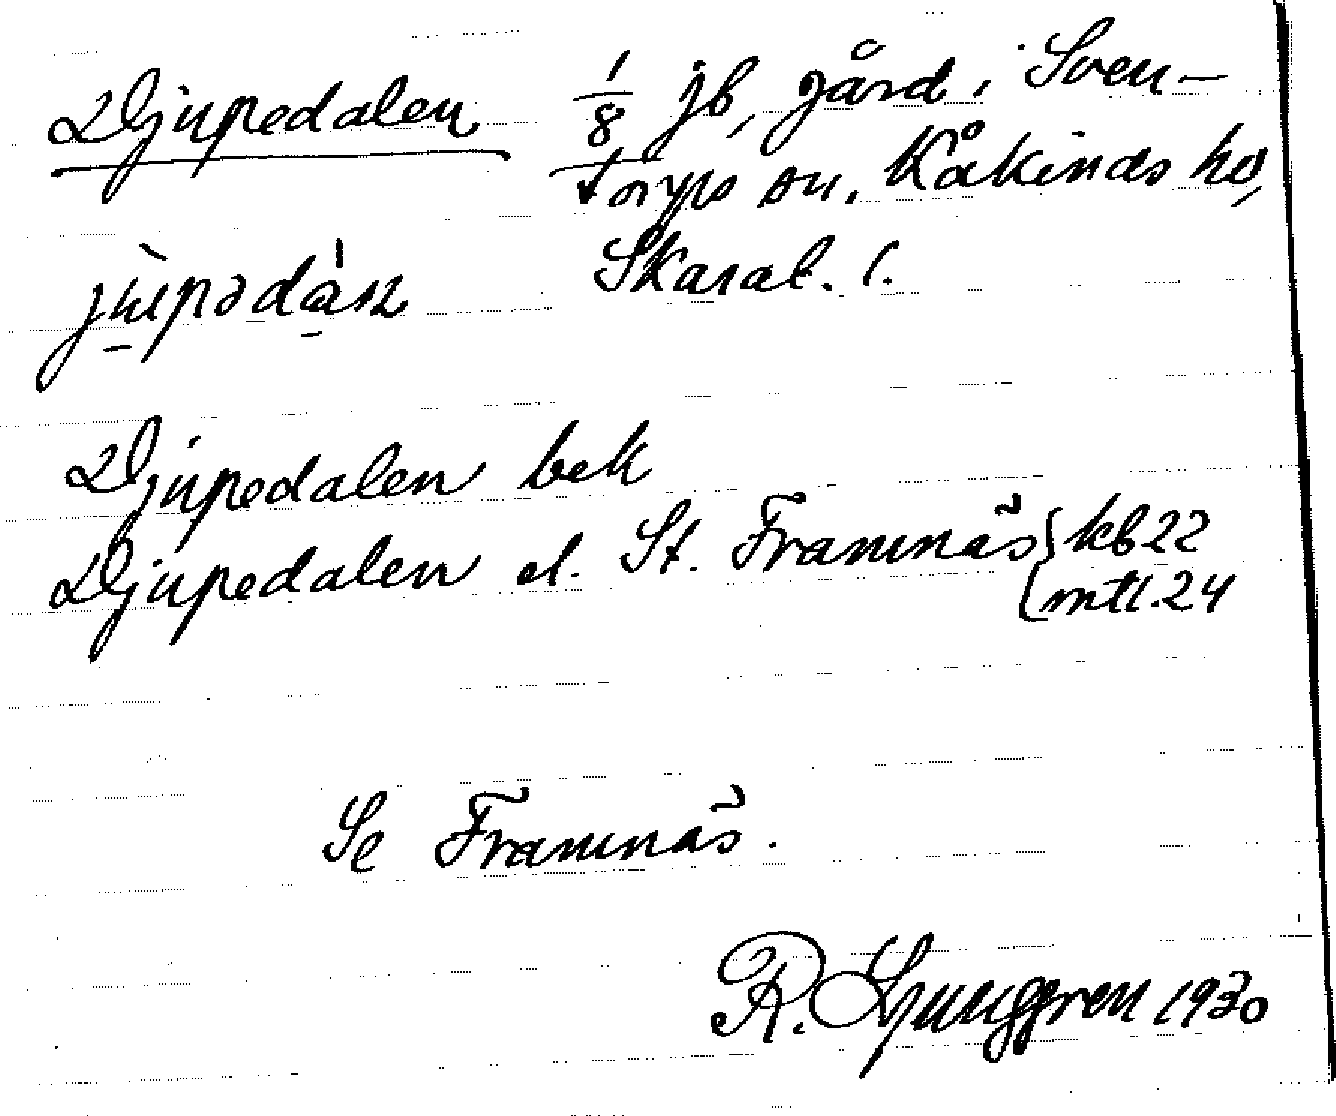 Djupedalen 1/8 jb, gård i Sven-
torps sn. Kåkinds hd,
Skarab. l.
Djupedalen bek
Djupedalen el. St. Framnäs { kb 22
mtl. 24
Se Framnäs.
R. Ljunggren 1930